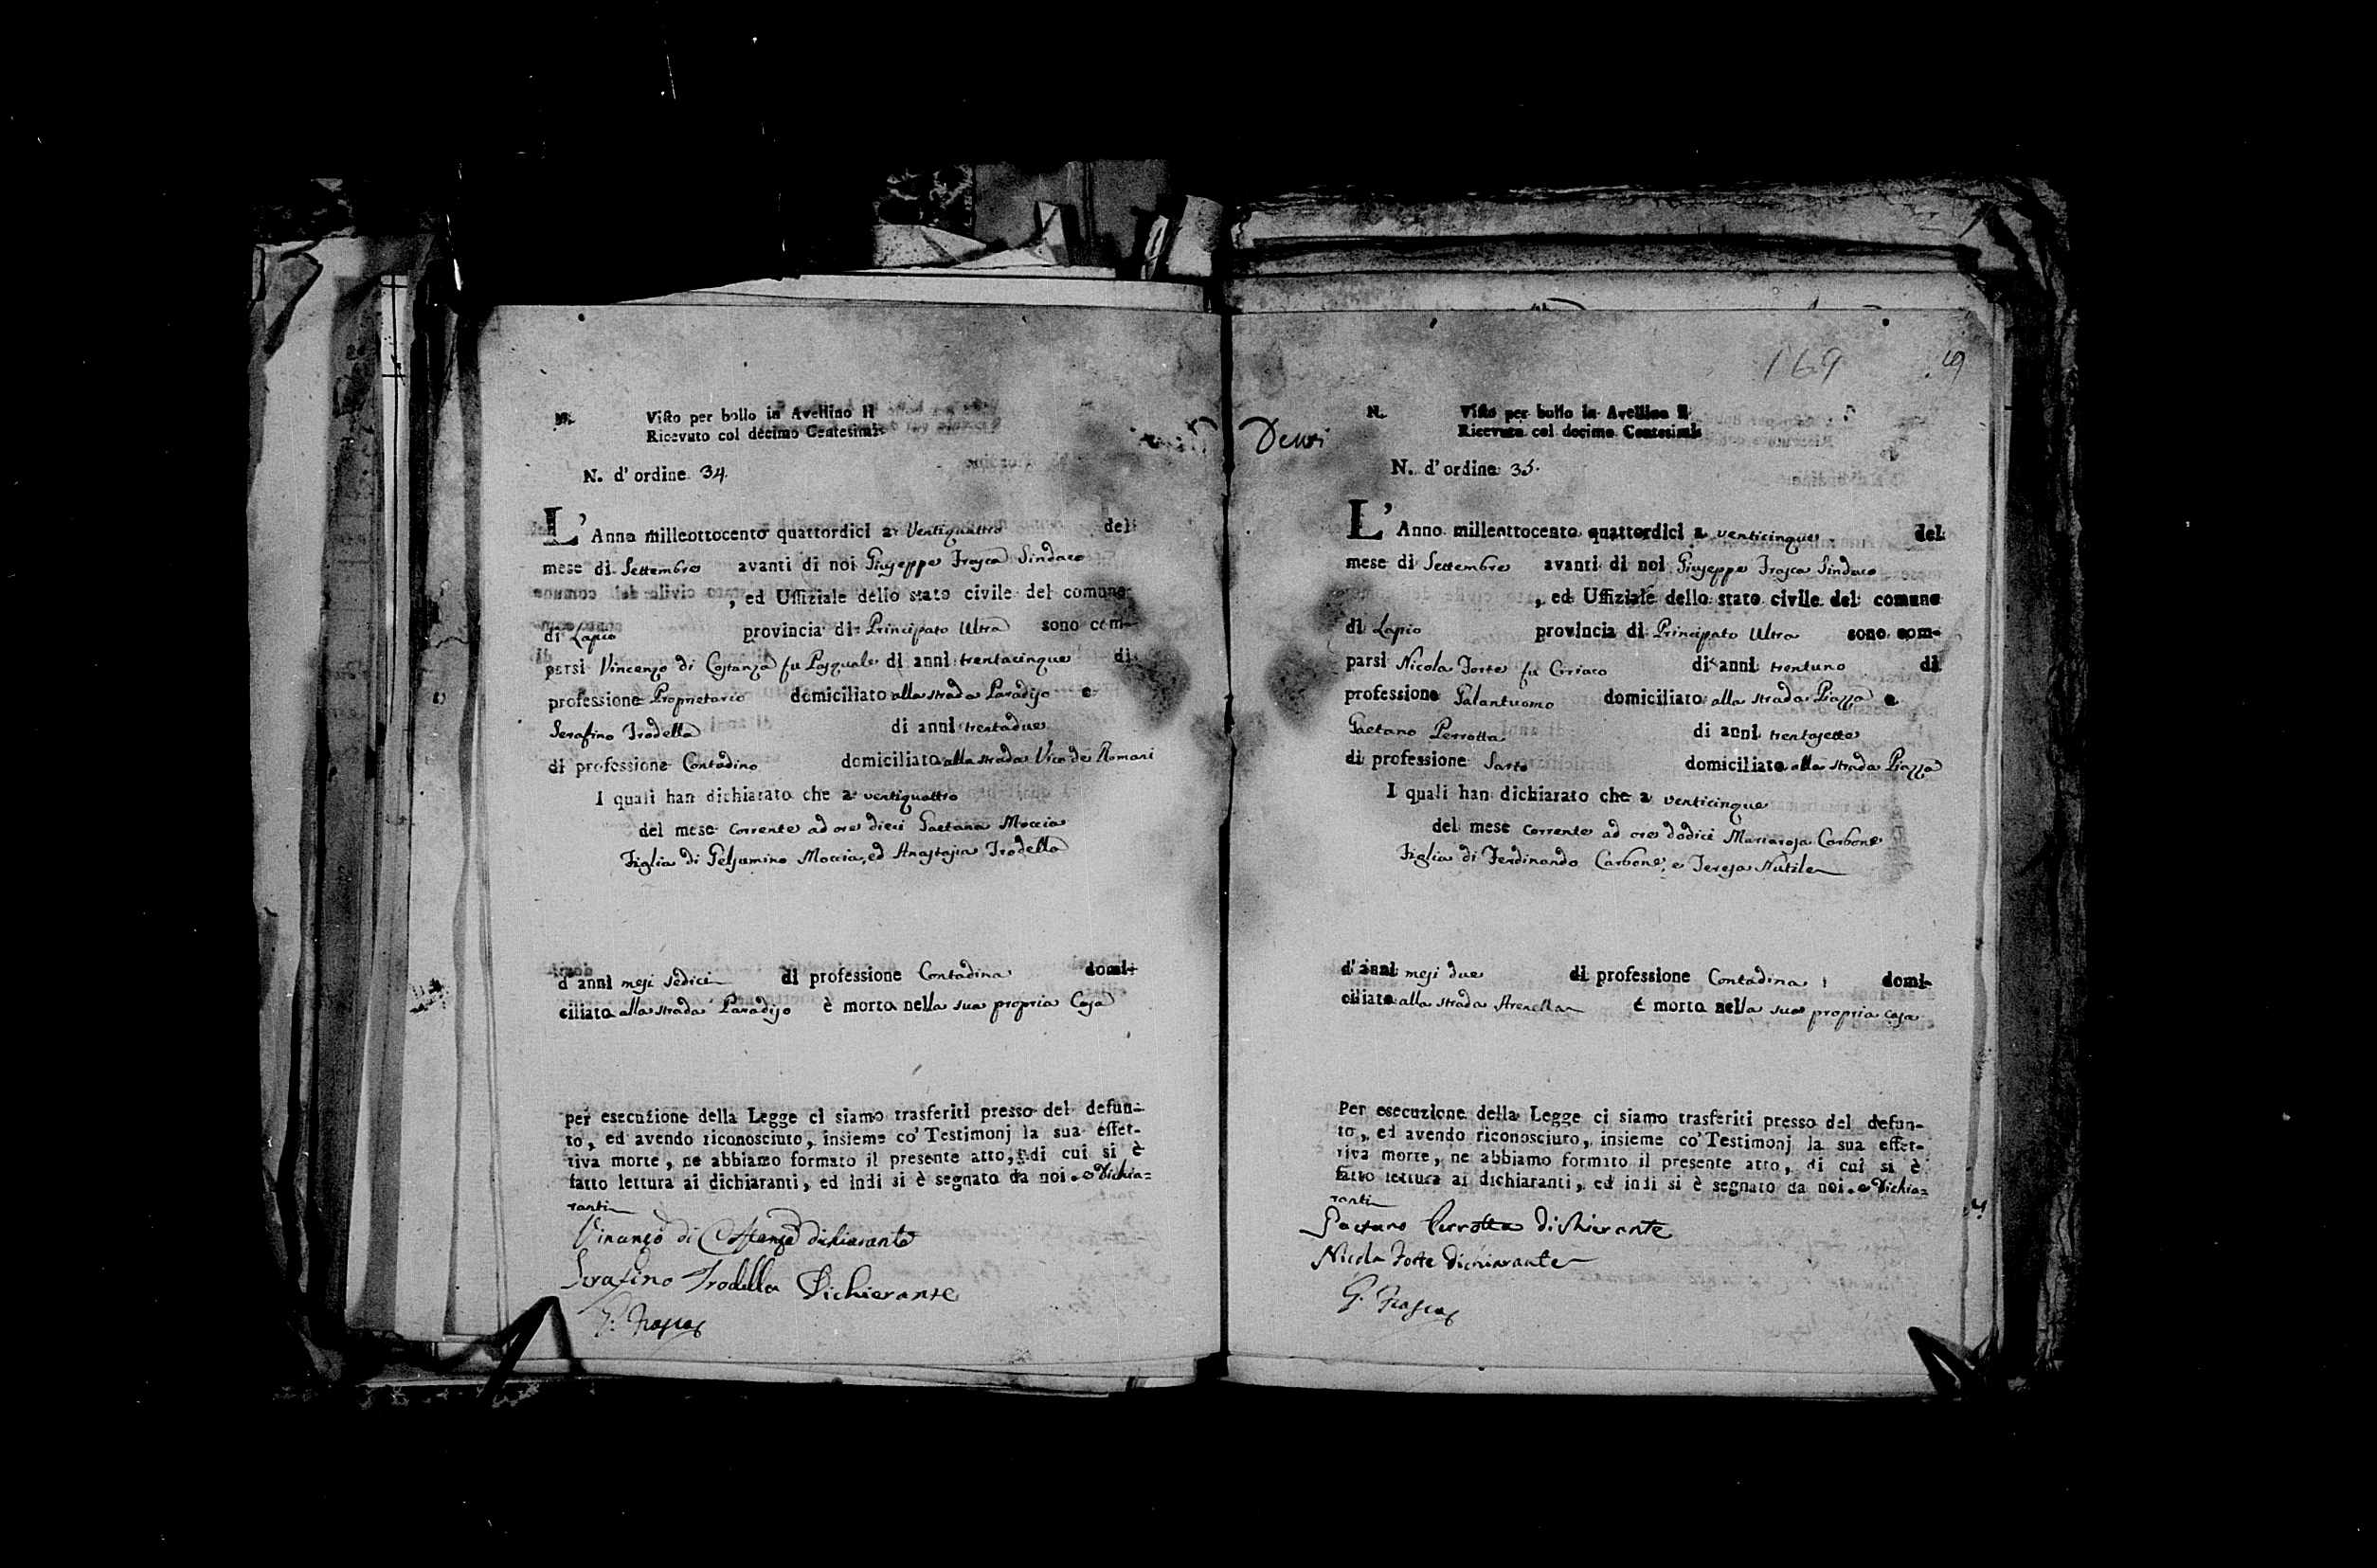 N. Visto per bollo in Avellino li
Ricevuto col decimo Centesimi
N. d'ordine 34.
L'Anno milleottocento quattordici a Ventiquattro del
mese di Settembre avanti di noi Giuseppe Frasca Sindaco
, ed Uffiziale dello stato civile del comune
di Lapio provincia di Principato Ultra sono com-
parsi Vincenzo di Costanza fu Pasquale di anni trentacinque di
professione Proprietario domiciliato alla strada Paradiso e
Serafino Trodella di anni trentadue
di professione Contadino domiciliato alla strada Vico de Romani
I quali han dichiarato che a ventiquattro
del mese corrente ad ore dieci Gaetana Moccia
Figlia di Gelsumino Moccia, ed Anastasia Trodella
d'anni mesi sedici di professione Contadina domi-
ciliata alla strada Paradiso è morta nella sua propria Casa
per esecuzione della Legge ci siamo trasferiti presso del defun-
to, ed avendo riconosciuto, insieme co' Testimonj la sua effet-
tiva morte, ne abbiamo formato il presente atto, di cui si è
fatto lettura ai dichiaranti, ed indi si è segnato da noi e Dichia=
ranti
Vincenzo di Costanzo dichiarante
Serafino Trodella Dichierante
G. Frasca
169
69
N. Visto per bollo in Avellino li
Ricevuto col decimo Centesimi
N. d'ordine 35.
L'Anno milleottocento quattordici a venticinque del
mese di Settembre avanti di noi Giuseppe Frasca Sindaco
, ed Uffiziale dello stato civile del comune
di Lapio provincia di Principato Ultra sono com-
parsi Nicola Forte fu Ciriaco di anni trentuno di
professione Galantuomo domiciliato alla strada Piazza e
Gaetano Perrotta di anni trentasette
di professione Sarto domiciliato alla strada Piazza
I quali han dichiarato che a venticinque
del mese corrente ad ore dodici Mariarosa Carbone
Figlia di Ferdinando Carbone, e Teresa Nutile
d'anni mesi due di professione Contadina domi-
ciliata alla strada Arenella è morta nella sua propria casa
Per esecuzione della Legge ci siamo trasferiti presso del defun-
to, ed avendo riconosciuto, insieme co' Testimonj la sua effet-
tiva morte, ne abbiamo formato il presente atto, di cui si è
fatto lettura ai dichiaranti, ed indi si è segnato da noi e Dichia=
ranti
Gaetano Perrotta dichierante
Nicola Forte Dichiarante
G. Frasca